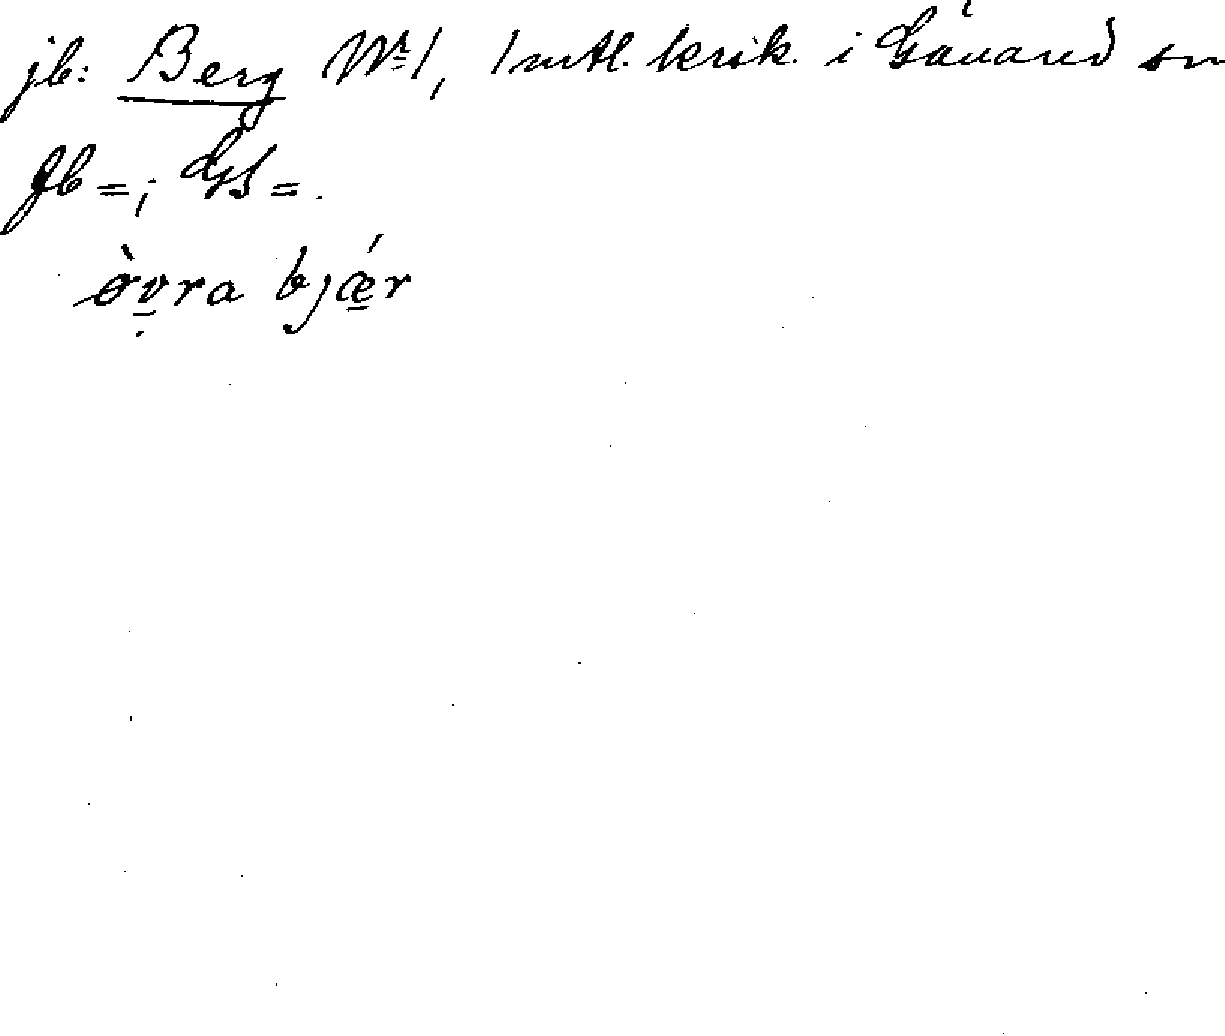 jb: Berg Nr 1, 1 mtl. krik. i Gåvarud sn
fb =; GS =.
òvra bjǽr